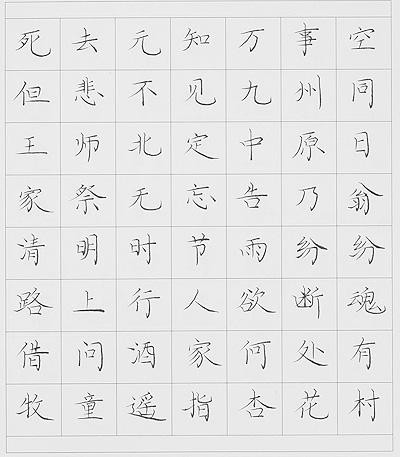 死去元知万事空
但悲不见九州同
王师北定中原日
家祭无忘告乃翁
清明时节雨纷纷
路上行人欲断魂
借问酒家何处有
牧童遥指杏花村